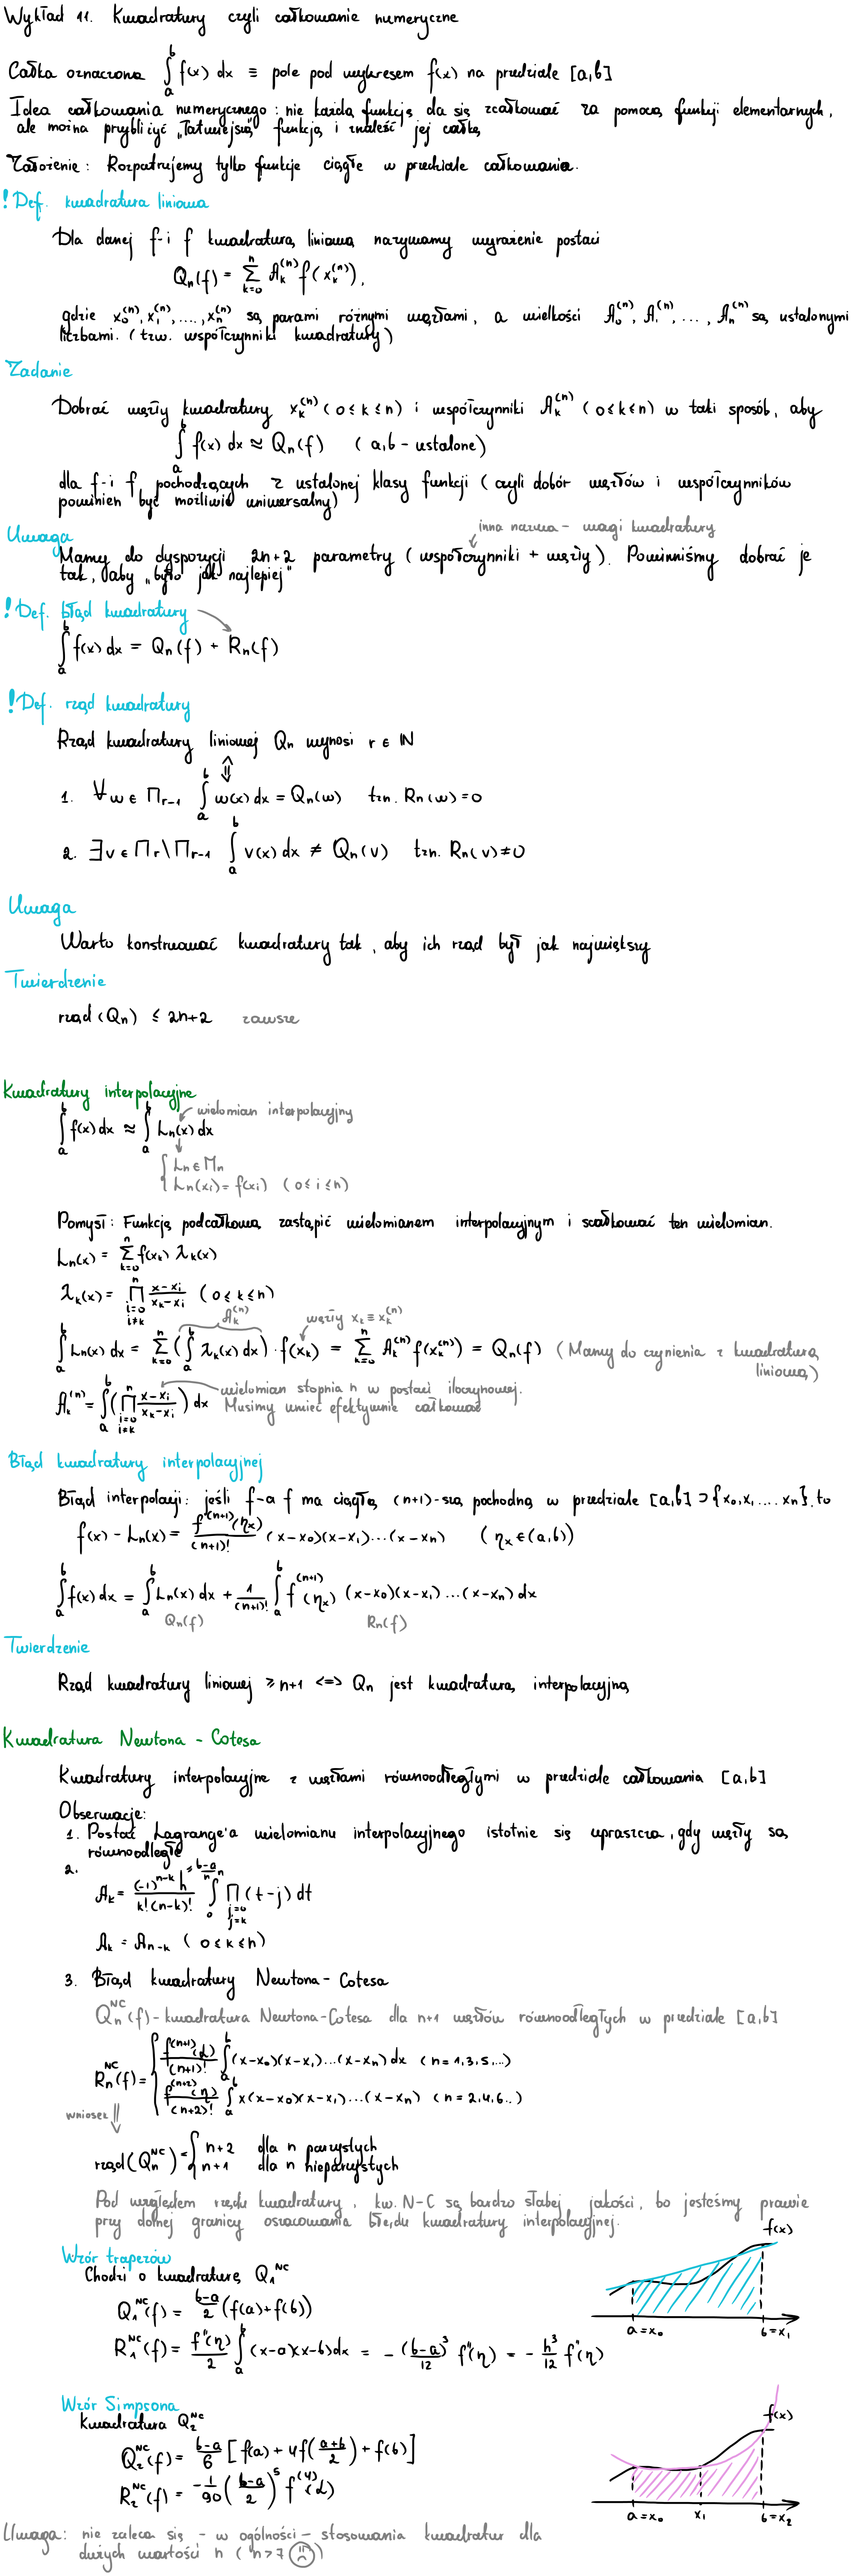 Wykład 11. Kwadratury czyli całkowanie numeryczne
Całka oznaczona ∫_a^b f(x) dx ≡ pole pod wykresem f(x) na przedziale [a,b]
Idea całkowania numerycznego: nie każdą funkcję da się zcałkować za pomocą funkcji elementarnych,
ale można przybliżyć „łatwiejszą" funkcją i znaleźć jej całkę
Założenie: Rozpatrujemy tylko funkcje ciągłe w przedziale całkowania.
! Def. kwadratura liniowa
Dla danej f-i f kwadraturą liniową nazywamy wyrażenie postaci
Q_n(f) = Σ_{k=0}^n A_k^(n) f(x_k^(n)),
gdzie x_0^(n), x_1^(n), ..., x_n^(n) są parami różnymi węzłami, a wielkości A_0^(n), A_1^(n), ..., A_n^(n) są ustalonymi
liczbami. (tzw. współczynniki kwadratury)
Zadanie
Dobrać węzły kwadratury x_k^(n) (0≤k≤n) i współczynniki A_k^(n) (0≤k≤n) w taki sposób, aby
∫_a^b f(x) dx ≈ Q_n(f) (a,b - ustalone)
dla f-i f pochodzących z ustalonej klasy funkcji (czyli dobór węzłów i współczynników
powinien być możliwie uniwersalny)
inna nazwa - wagi kwadratury
Uwaga
Mamy do dyspozycji 2n+2 parametry (współczynniki + węzły). Powinniśmy dobrać je
tak, aby „było jak najlepiej"
! Def. błąd kwadratury
∫_a^b f(x) dx = Q_n(f) + R_n(f)
! Def. rząd kwadratury
Rząd kwadratury liniowej Q_n wynosi r ∈ ℕ
⇕
1. ∀w ∈ Π_{r-1} ∫_a^b w(x) dx = Q_n(w) tzn. R_n(w) = 0
2. ∃v ∈ Π_r \ Π_{r-1} ∫_a^b v(x) dx ≠ Q_n(v) tzn. R_n(v) ≠ 0
Uwaga
Warto konstruować kwadratury tak, aby ich rząd był jak największy
Twierdzenie
rząd(Q_n) ≤ 2n+2 zawsze
Kwadratury interpolacyjne
wielomian interpolacyjny
∫_a^b f(x) dx ≈ ∫_a^b L_n(x) dx
{ L_n ∈ Π_n
L_n(x_i) = f(x_i) (0≤i≤n)
Pomysł: Funkcję podcałkową zastąpić wielomianem interpolacyjnym i scałkować ten wielomian.
L_n(x) = Σ_{k=0}^n f(x_k) λ_k(x)
λ_k(x) = Π_{i=0, i≠k}^n (x-x_i)/(x_k-x_i) (0≤k≤n)
A_k^(n) węzły x_k ≡ x_k^(n)
∫_a^b L_n(x) dx = Σ_{k=0}^n (∫_a^b λ_k(x) dx) · f(x_k) = Σ_{k=0}^n A_k^(n) f(x_k^(n)) = Q_n(f) (Mamy do czynienia z kwadraturą
liniową)
A_k^(n) = ∫_a^b (Π_{i=0, i≠k}^n (x-x_i)/(x_k-x_i)) dx wielomian stopnia n w postaci iloczynowej.
Musimy umieć efektywnie całkować
Błąd kwadratury interpolacyjnej
Błąd interpolacji: jeśli f-a f ma ciągłą (n+1)-szą pochodną w przedziale [a,b] ⊃ {x_0, x_1, ..., x_n}, to
f(x) - L_n(x) = f^(n+1)(η_x)/(n+1)! (x-x_0)(x-x_1)...(x-x_n) (η_x ∈ (a,b))
∫_a^b f(x) dx = ∫_a^b L_n(x) dx + 1/(n+1)! ∫_a^b f^(n+1)(η_x) (x-x_0)(x-x_1)...(x-x_n) dx
Q_n(f) R_n(f)
Twierdzenie
Rząd kwadratury liniowej ≥ n+1 <=> Q_n jest kwadraturą interpolacyjną
Kwadratura Newtona - Cotesa
Kwadratury interpolacyjne z węzłami równoodległymi w przedziale całkowania [a,b]
Obserwacje:
1. Postać Lagrange'a wielomianu interpolacyjnego istotnie się upraszcza, gdy węzły są
równoodległe
2.
A_k = (-1)^{n-k} h/(k!(n-k)!) ∫_0^n Π_{j=0, j=k} (t-j) dt h = (b-a)/n
A_k = A_{n-k} (0≤k≤n)
3. Błąd kwadratury Newtona - Cotesa
Q_n^NC(f) - kwadratura Newtona-Cotesa dla n+1 węzłów równoodległych w przedziale [a,b]
R_n^NC(f) = { f^(n+1)(α)/(n+1)! ∫_a^b (x-x_0)(x-x_1)...(x-x_n) dx (n=1,3,5,...)
f^(n+2)(η)/(n+2)! ∫_a^b x(x-x_0)(x-x_1)...(x-x_n) (n=2,4,6..)
wniosek ⇓
rząd(Q_n^NC) = { n+2 dla n parzystych
n+1 dla n nieparzystych
Pod względem rzędu kwadratury, kw. N-C są bardzo słabej jakości, bo jesteśmy prawie
przy dolnej granicy oszacowania błędu kwadratury interpolacyjnej.
Wzór trapezów
Chodzi o kwadraturę Q_1^NC
Q_1^NC(f) = (b-a)/2 (f(a)+f(b))
R_1^NC(f) = f''(η)/2 ∫_a^b (x-a)(x-b)dx = -(b-a)^3/12 f''(η) = -h^3/12 f''(η)
f(x)
a=x_0 b=x_1
Wzór Simpsona
Kwadratura Q_2^NC
Q_2^NC(f) = (b-a)/6 [f(a) + 4f((a+b)/2) + f(b)]
R_2^NC(f) = -1/90 ((b-a)/2)^5 f^(4)(α)
f(x)
a=x_0 x_1 b=x_2
Uwaga: nie zaleca się - w ogólności - stosowania kwadratur dla
dużych wartości n (n>7 ☹)